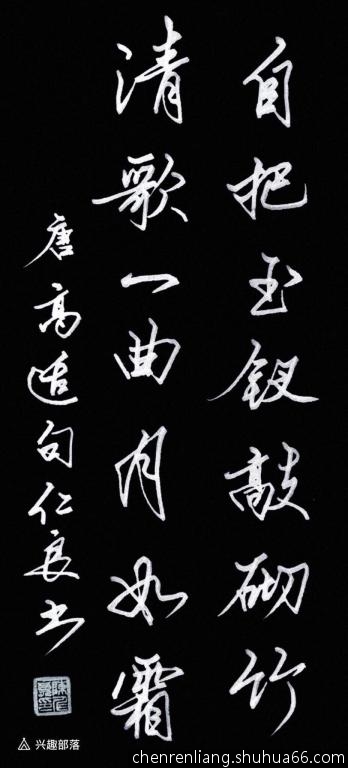 自把玉釵敲砌竹
清歌一曲月如霜
唐高適句仁良书
兴趣部落
chenrenliang.shuhua66.com